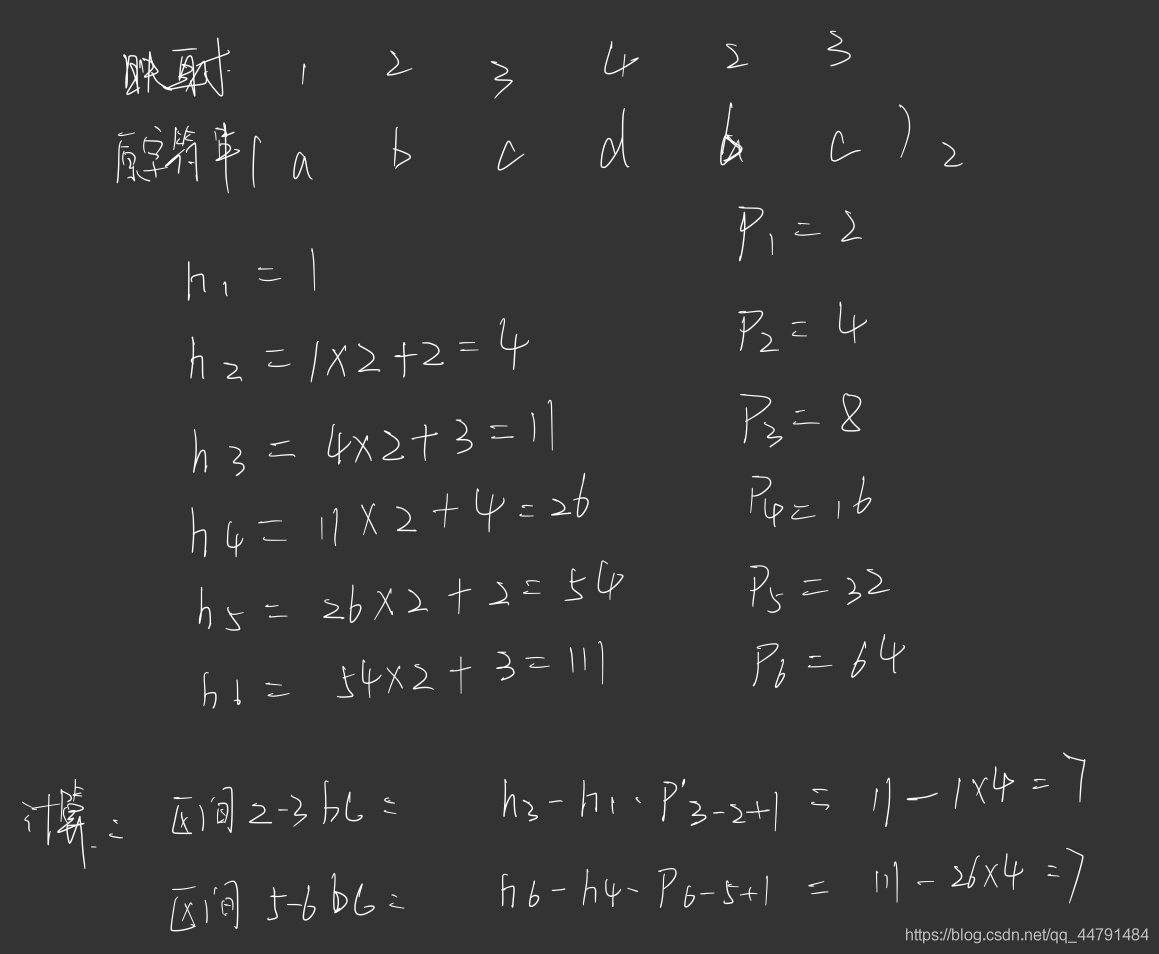 映射 1 2 3 4 2 3
原字符串 ( a b c d b c ) 2
P1 = 2
h1 = 1
P2 = 4
h2 = 1×2+2=4
P3 = 8
h3 = 4×2+3=11
P4=16
h4 = 11×2+4=26
P5=32
h5 = 26×2+2=54
P6=64
h6 = 54×2+3=111
计算: 区间2-3 bc = h3-h1·P3-2+1 = 11-1×4=7
区间 5-6 bc = h6-h4-P6-5+1 = 111-26×4=7
https://blog.csdn.net/qq_44791484